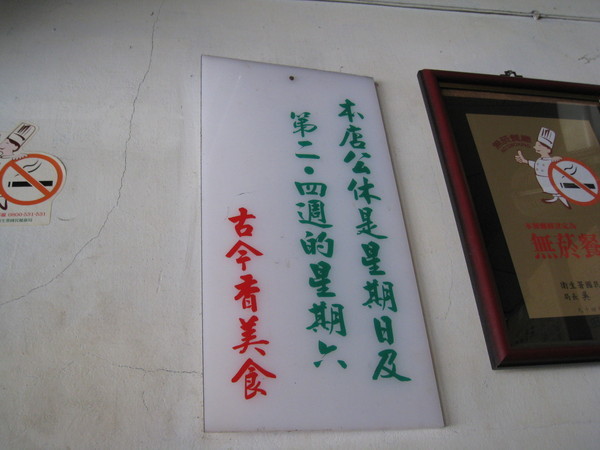 本店公休是星期日及
第二．四週的星期六
古今香美食
無菸餐